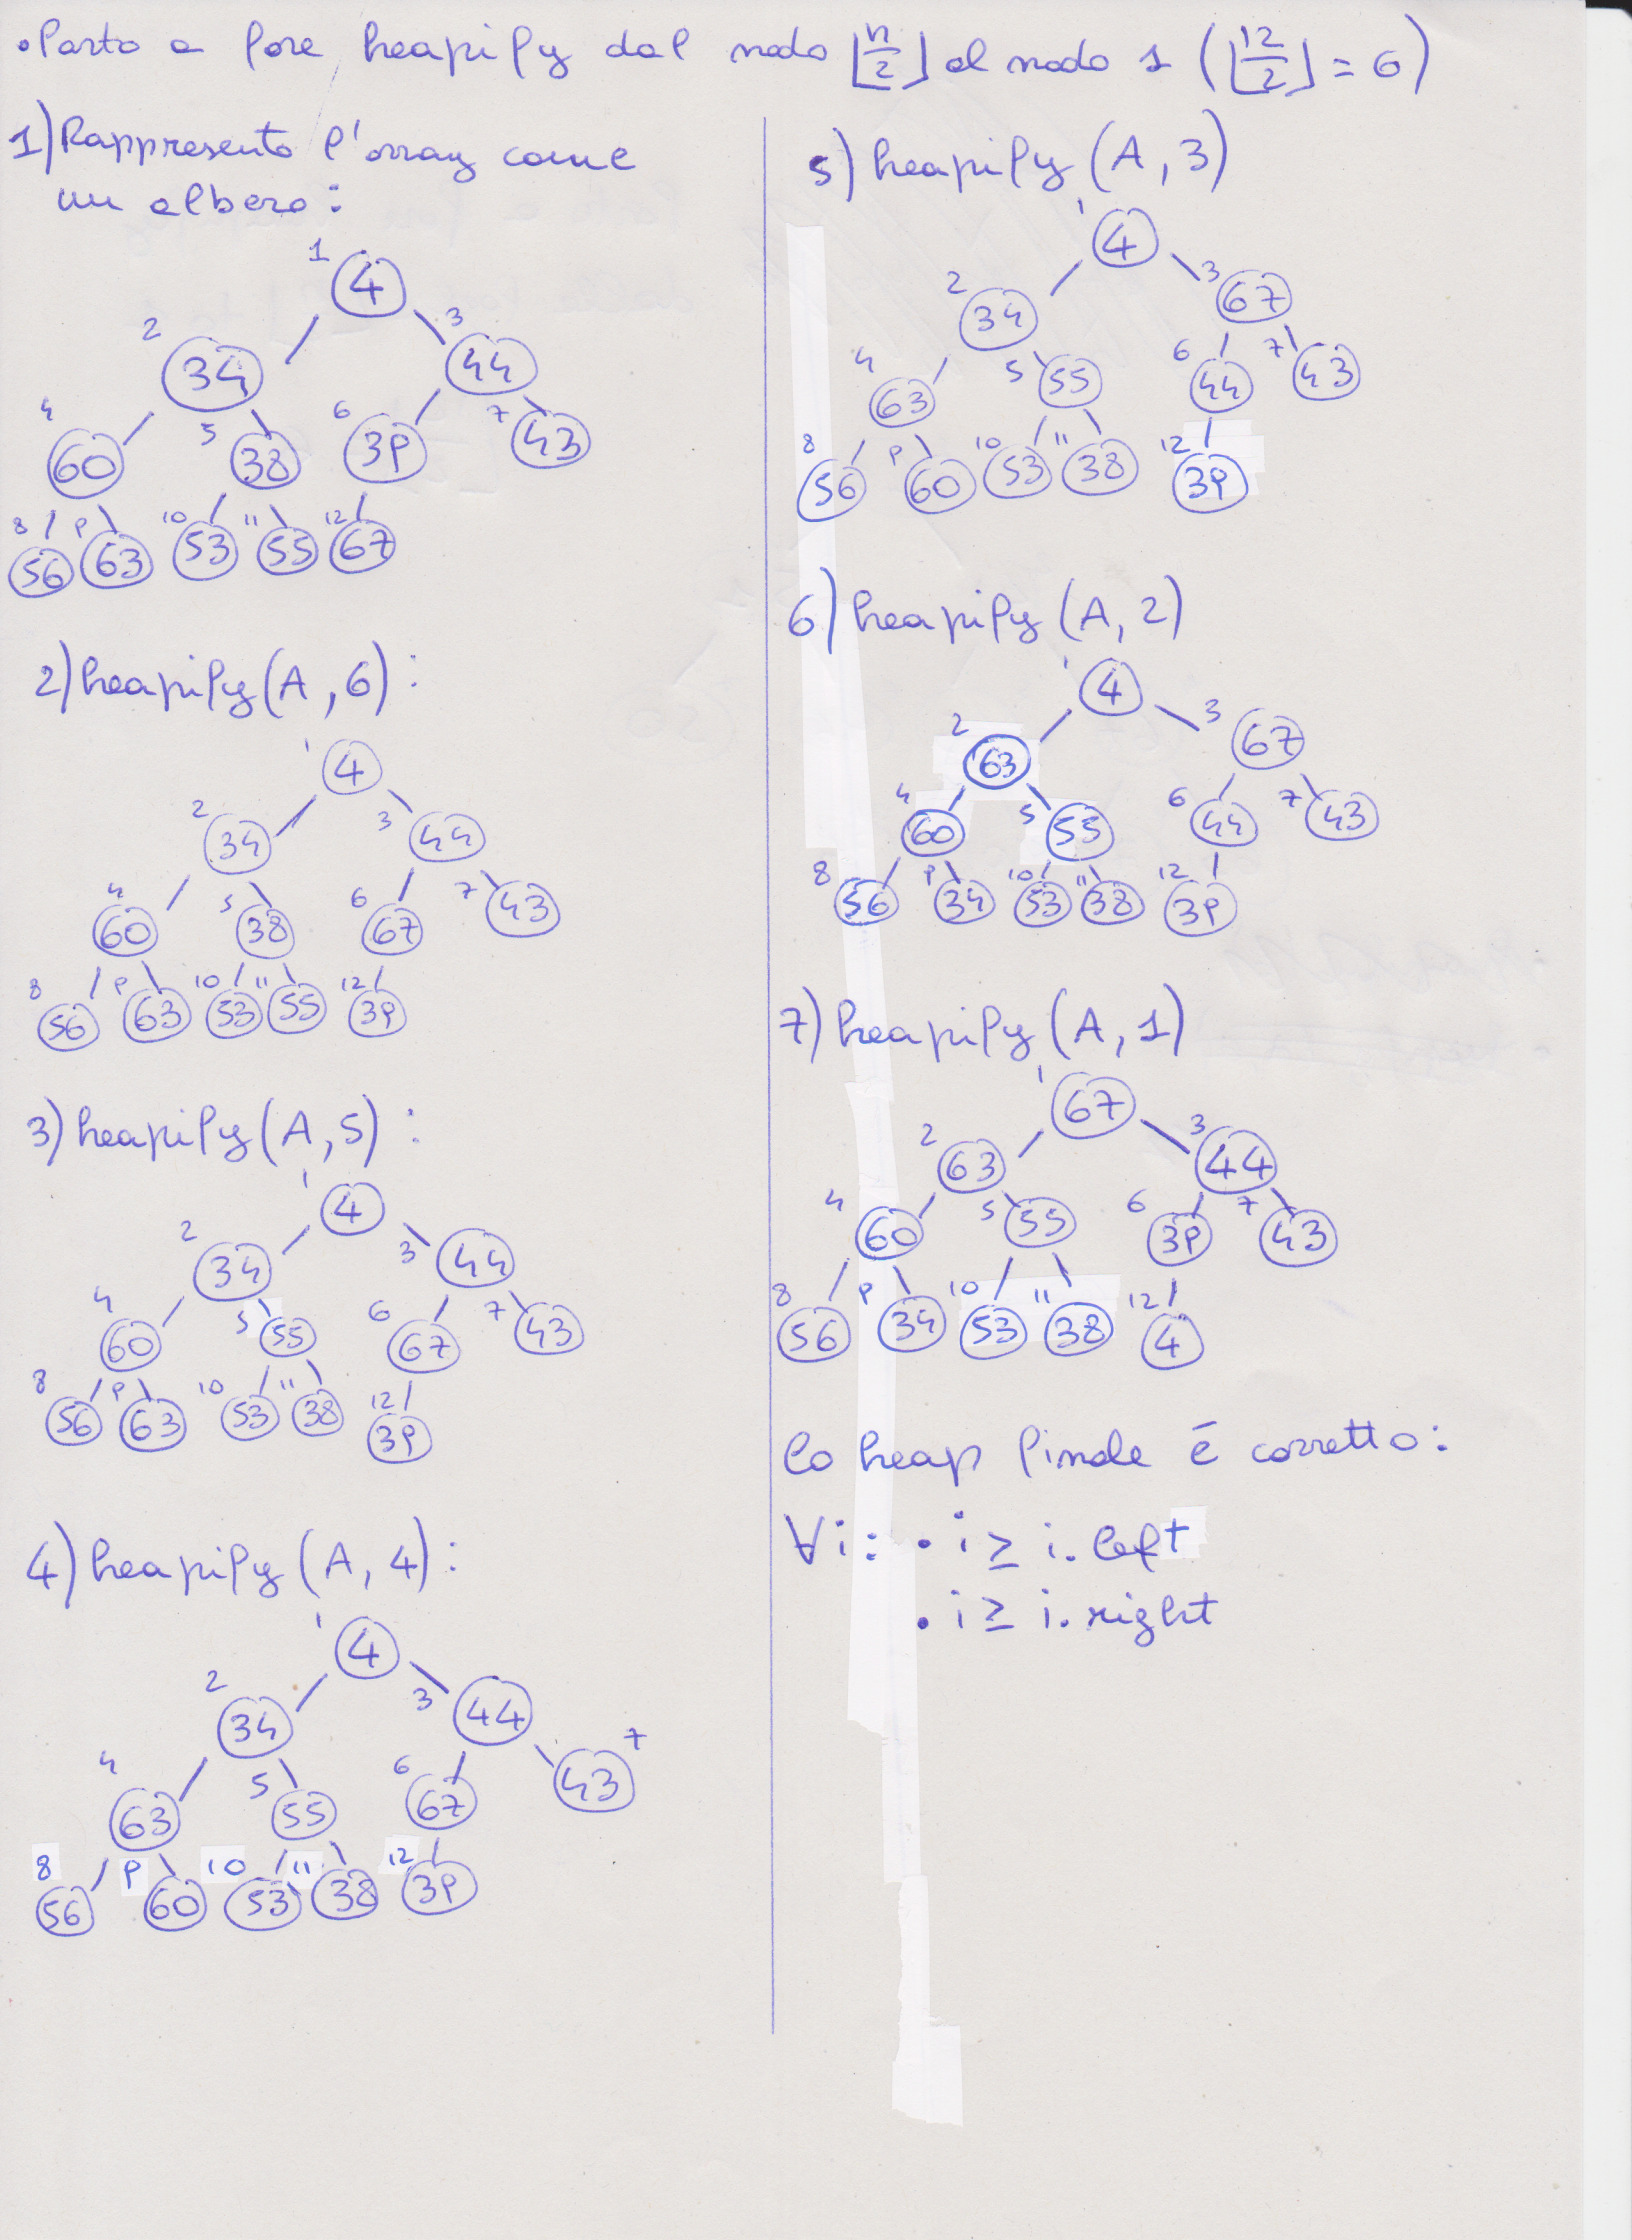 • Parto a fare heapify dal nodo ⌊n/2⌋ al nodo 1 (⌊12/2⌋ = 6)
1) Rappresento l'array come
un albero:
1 4
2 34 3 44
4 60 5 38 6 39 7 43
8 56 9 63 10 53 11 55 12 67
2) heapify(A, 6):
1 4
2 34 3 44
4 60 5 38 6 67 7 43
8 56 9 63 10 53 11 55 12 39
3) heapify(A, 5):
1 4
2 34 3 44
4 60 5 55 6 67 7 43
8 56 9 63 10 53 11 38 12 39
4) heapify(A, 4):
1 4
2 34 3 44
4 63 5 55 6 67 7 43
8 56 9 60 10 53 11 38 12 39
5) heapify(A, 3)
1 4
2 34 3 67
4 63 5 55 6 44 7 43
8 56 9 60 10 53 11 38 12 39
6) heapify(A, 2)
1 4
2 63 3 67
4 60 5 55 6 44 7 43
8 56 9 34 10 53 11 38 12 39
7) heapify(A, 1)
1 67
2 63 3 44
4 60 5 55 6 39 7 43
8 56 9 34 10 53 11 38 12 4
lo heap finale é corretto:
∀i: • i ≥ i.left
• i ≥ i.right